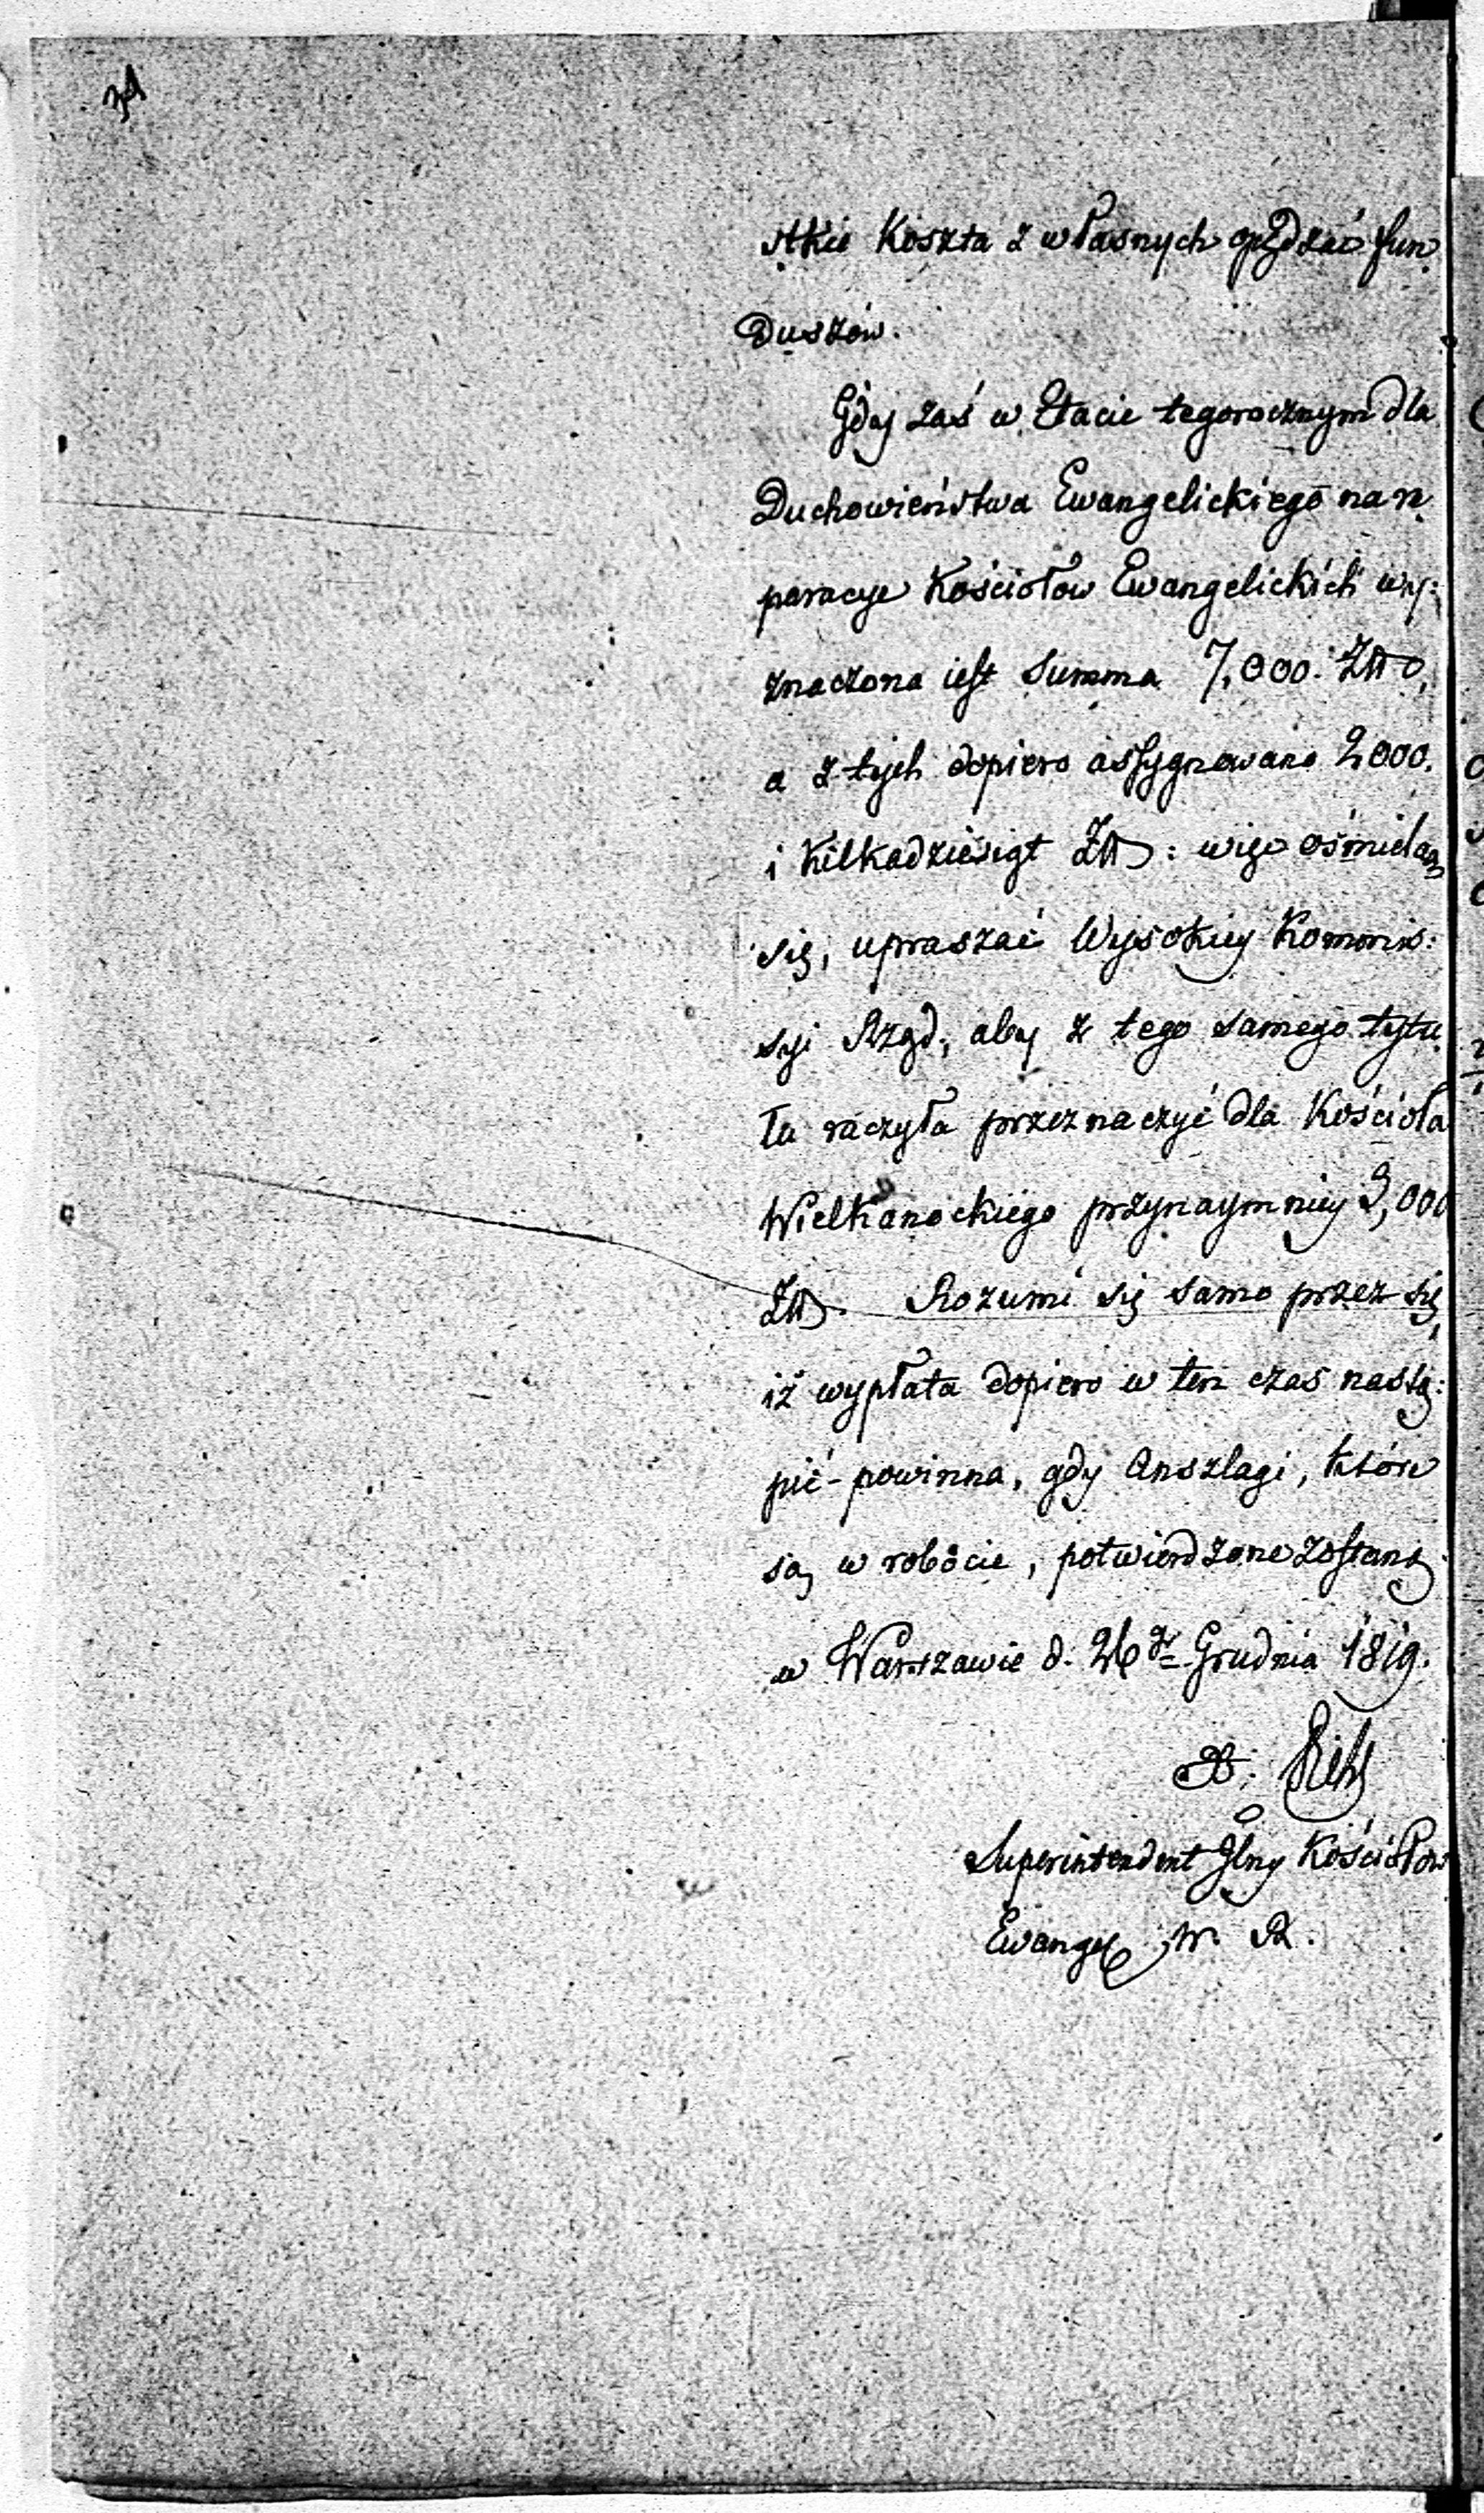 34
stkie Koszta z własnych opędzać fun
duszów.
Gdy zaś w Etacie tegorocznym dla
Duchowieństwa Ewangelickiego na re
paracye Kościołow Ewangelickich wy:
znaczona iest Summa 7,000. Złł,
a z tych dopiero assygnowano 2000.
i kilkadziesiąt Złł: więc ośmielam
się, upraszać Wysokiey Kommis:
syi Rząd:, aby z tego samego tytu
łu raczyła przeznaczyć dla Kościoła
Wielkanockiego przynaymniey 3,000
Złł. Rozumi się samo przez się,
iż wypłata dopiero w ten czas nastą:
pić powinna, gdy Anszlagi, które
są w robocie, potwierdzone zostaną.
w Warszawie d. 26 Grudnia 1819.
Superintendent Glny Kościołow
Ewangel W. R.